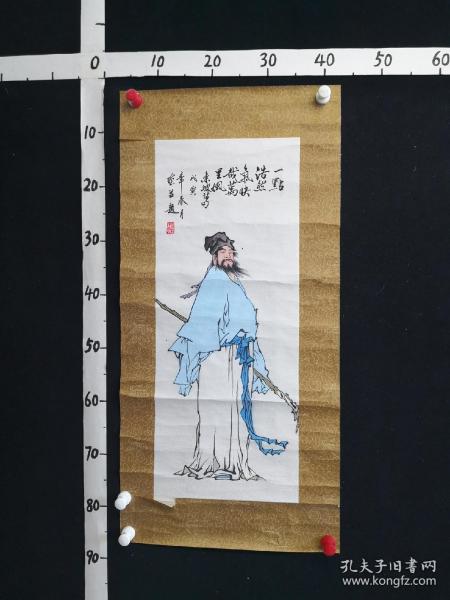 0 10 20 30 40 50 60
10
20
30
40
50
60
70
80
90
一點
浩然
氣快
哉萬
里風
東坡句
戊寅
年春月
孔夫子旧书网
www.kongfz.com